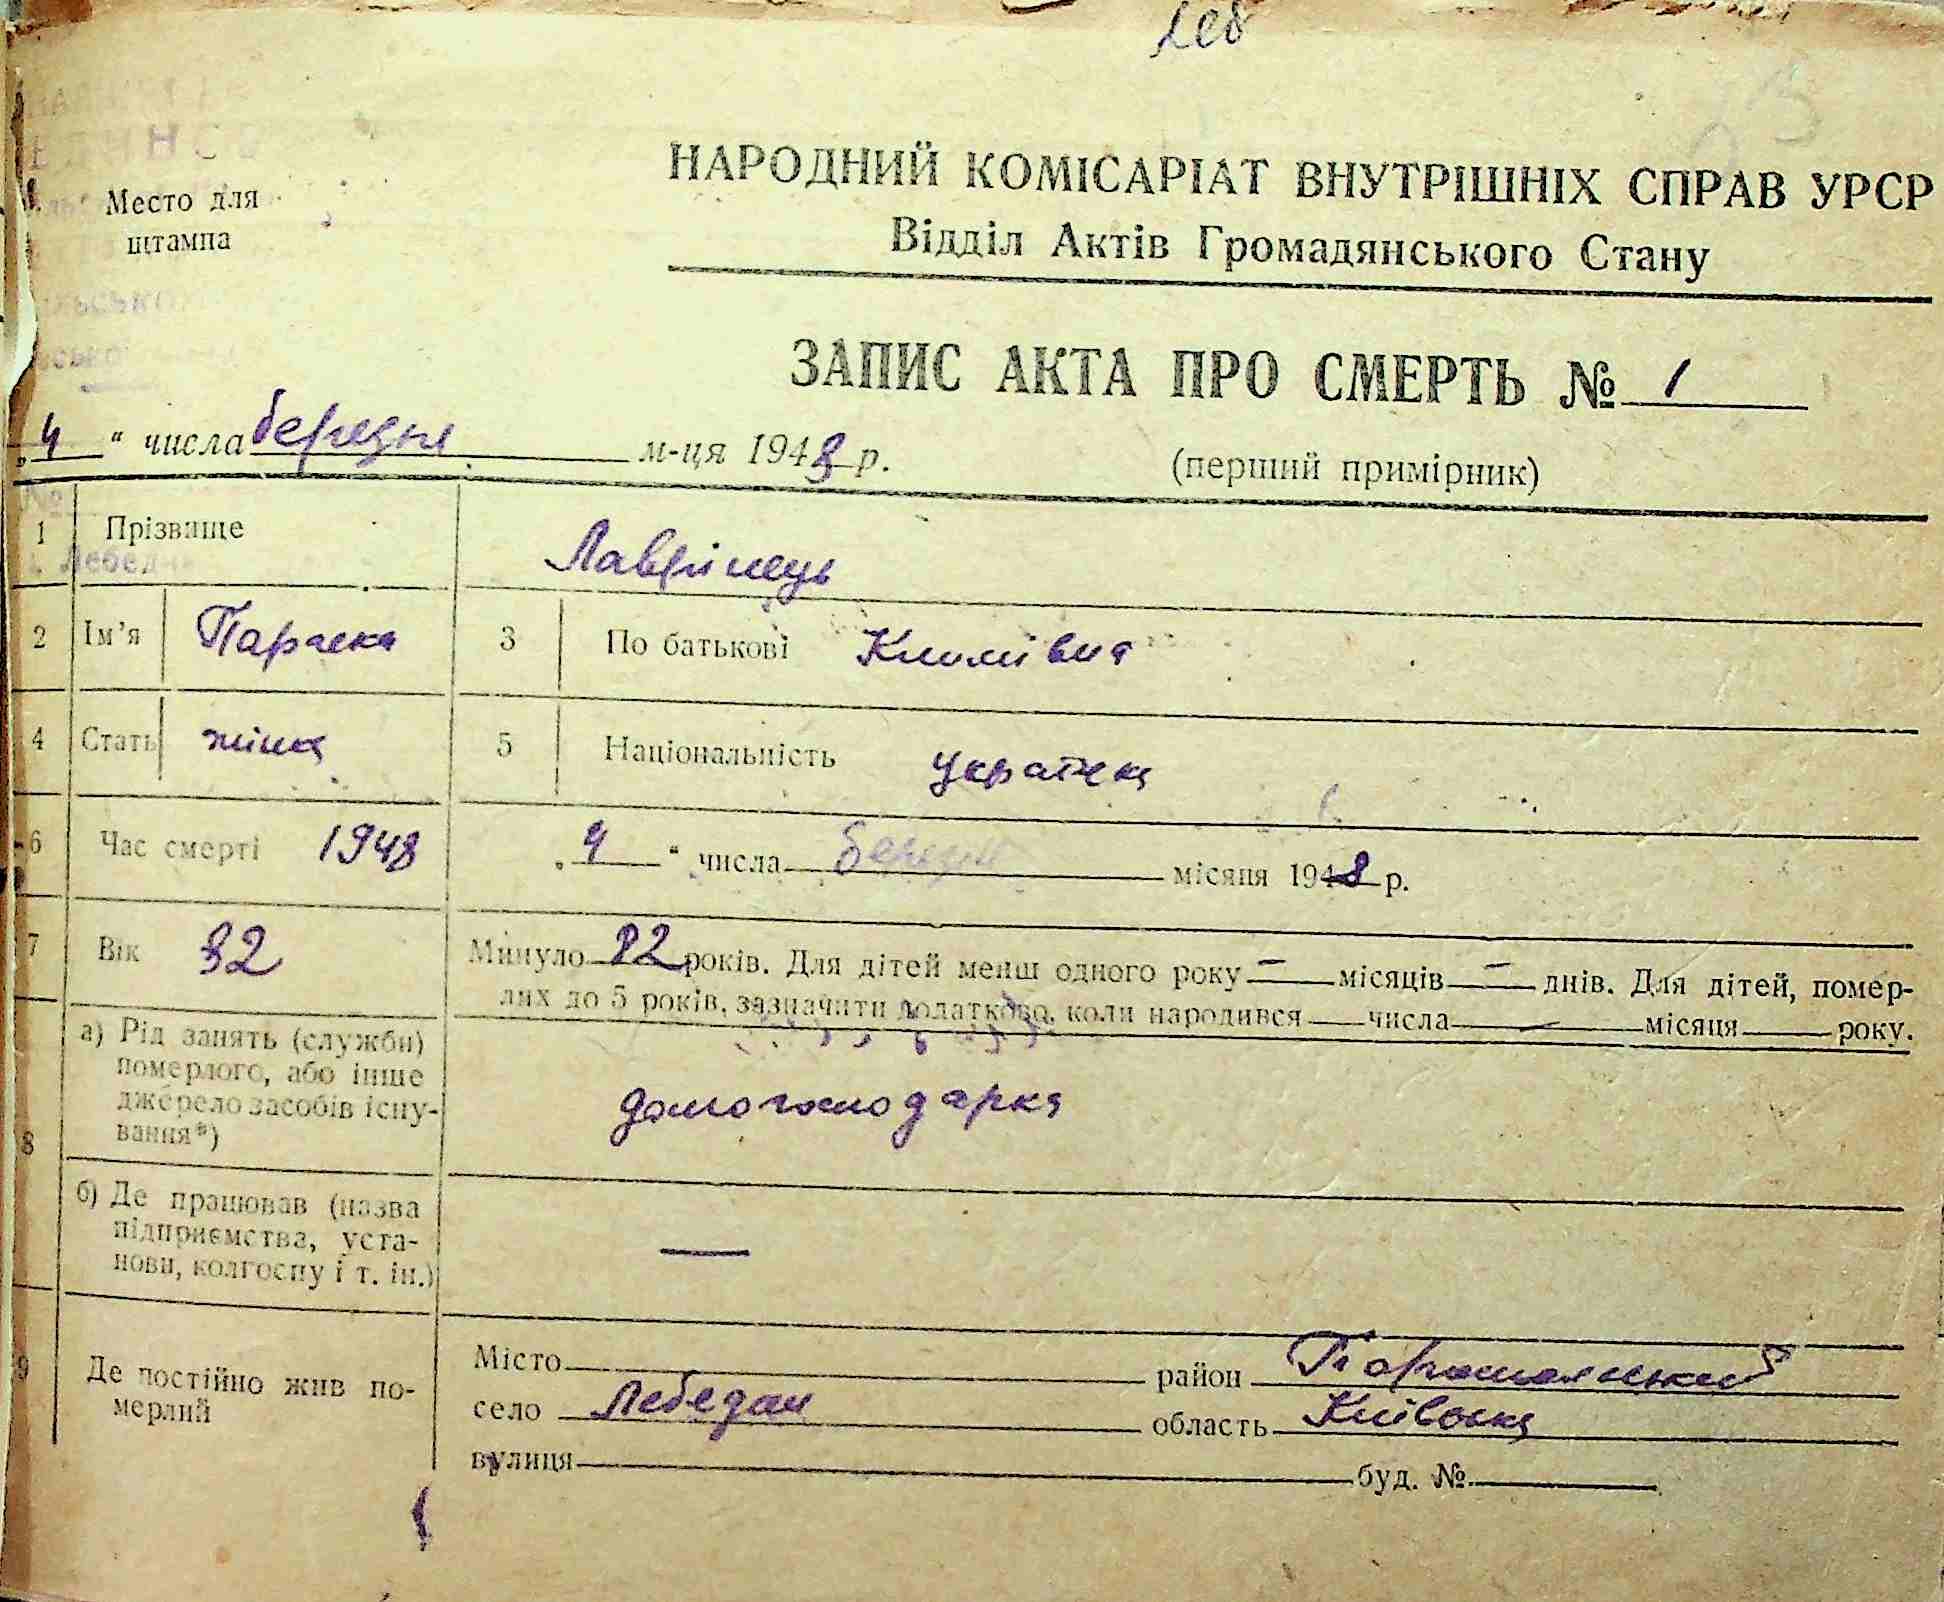 Леб
НАРОДНИЙ КОМІСАРІАТ ВНУТРІШНІХ СПРАВ УРСР
Відділ Актів Громадянського Стану
Место для
штампа
ЗАПИС АКТА ПРО СМЕРТЬ № 1
„4“ числа березня м-ця 1948 р.
(перший примірник)
1 Прізвище Лаврінець
2 Ім'я Параска 3 По батькові Климівна
4 Стать жінка 5 Національність українка
6 Час смерті 1948 „4“ числа березня місяця 1948 р.
7 Вік 82 Минуло 82 років. Для дітей менш одного року — місяців — днів. Для дітей, помер-
лих до 5 років, зазначити додатково, коли народився — числа — місяця — року.
8 а) Рід занять (служби)
померлого, або інше
джерело засобів існу-
вання*)
домогосподарка
б) Де працював (назва
підприємства, уста-
нови, колгоспу і т. ін.)
—
9 Де постійно жив по-
мерлий
Місто район
село Лебедин область Київська
вулиця буд. №